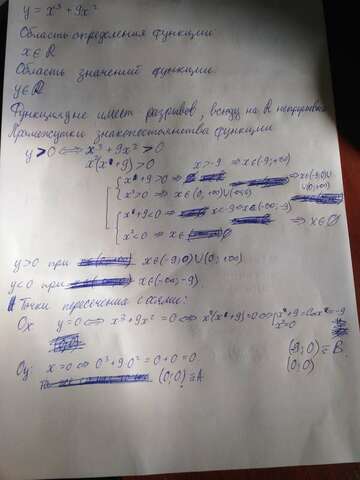 y = x³ + 9x²
Область определения функции
x ∈ R
Область значений функции
y ∈ R
Функция не имеет разрывов, всюду на R непрерывна
Промежутки знакопостоянства функции
y > 0 ⇔ x³ + 9x² > 0
x²(x+9) > 0 x > -9 ⇒ x ∈ (-9; +∞)
x+9 > 0 ⇒ ⇒ x ∈ (-9; 0) ∪
x² > 0 ⇒ x ∈ (0; +∞) ∪ (-∞; 0) (0; +∞)
x+9 < 0 ⇒ x < -9 ⇒ x ∈ (-∞; -9)
x² < 0 ⇒ x ∈ ∅ ⇒ x ∈ ∅
y > 0 при x ∈ (-9; 0) ∪ (0; +∞)
y < 0 при x ∈ (-∞; -9)
Точки пересечения с осями:
Ox y = 0 ⇔ x³ + 9x² = 0 ⇔ x²(x+9) = 0 ⇔ x+9 = 0 x = -9
x² = 0
(-9; 0) = B
Oy: x = 0 ⇔ 0³ + 9·0² = 0 + 0 = 0 (0; 0)
(0; 0) = A